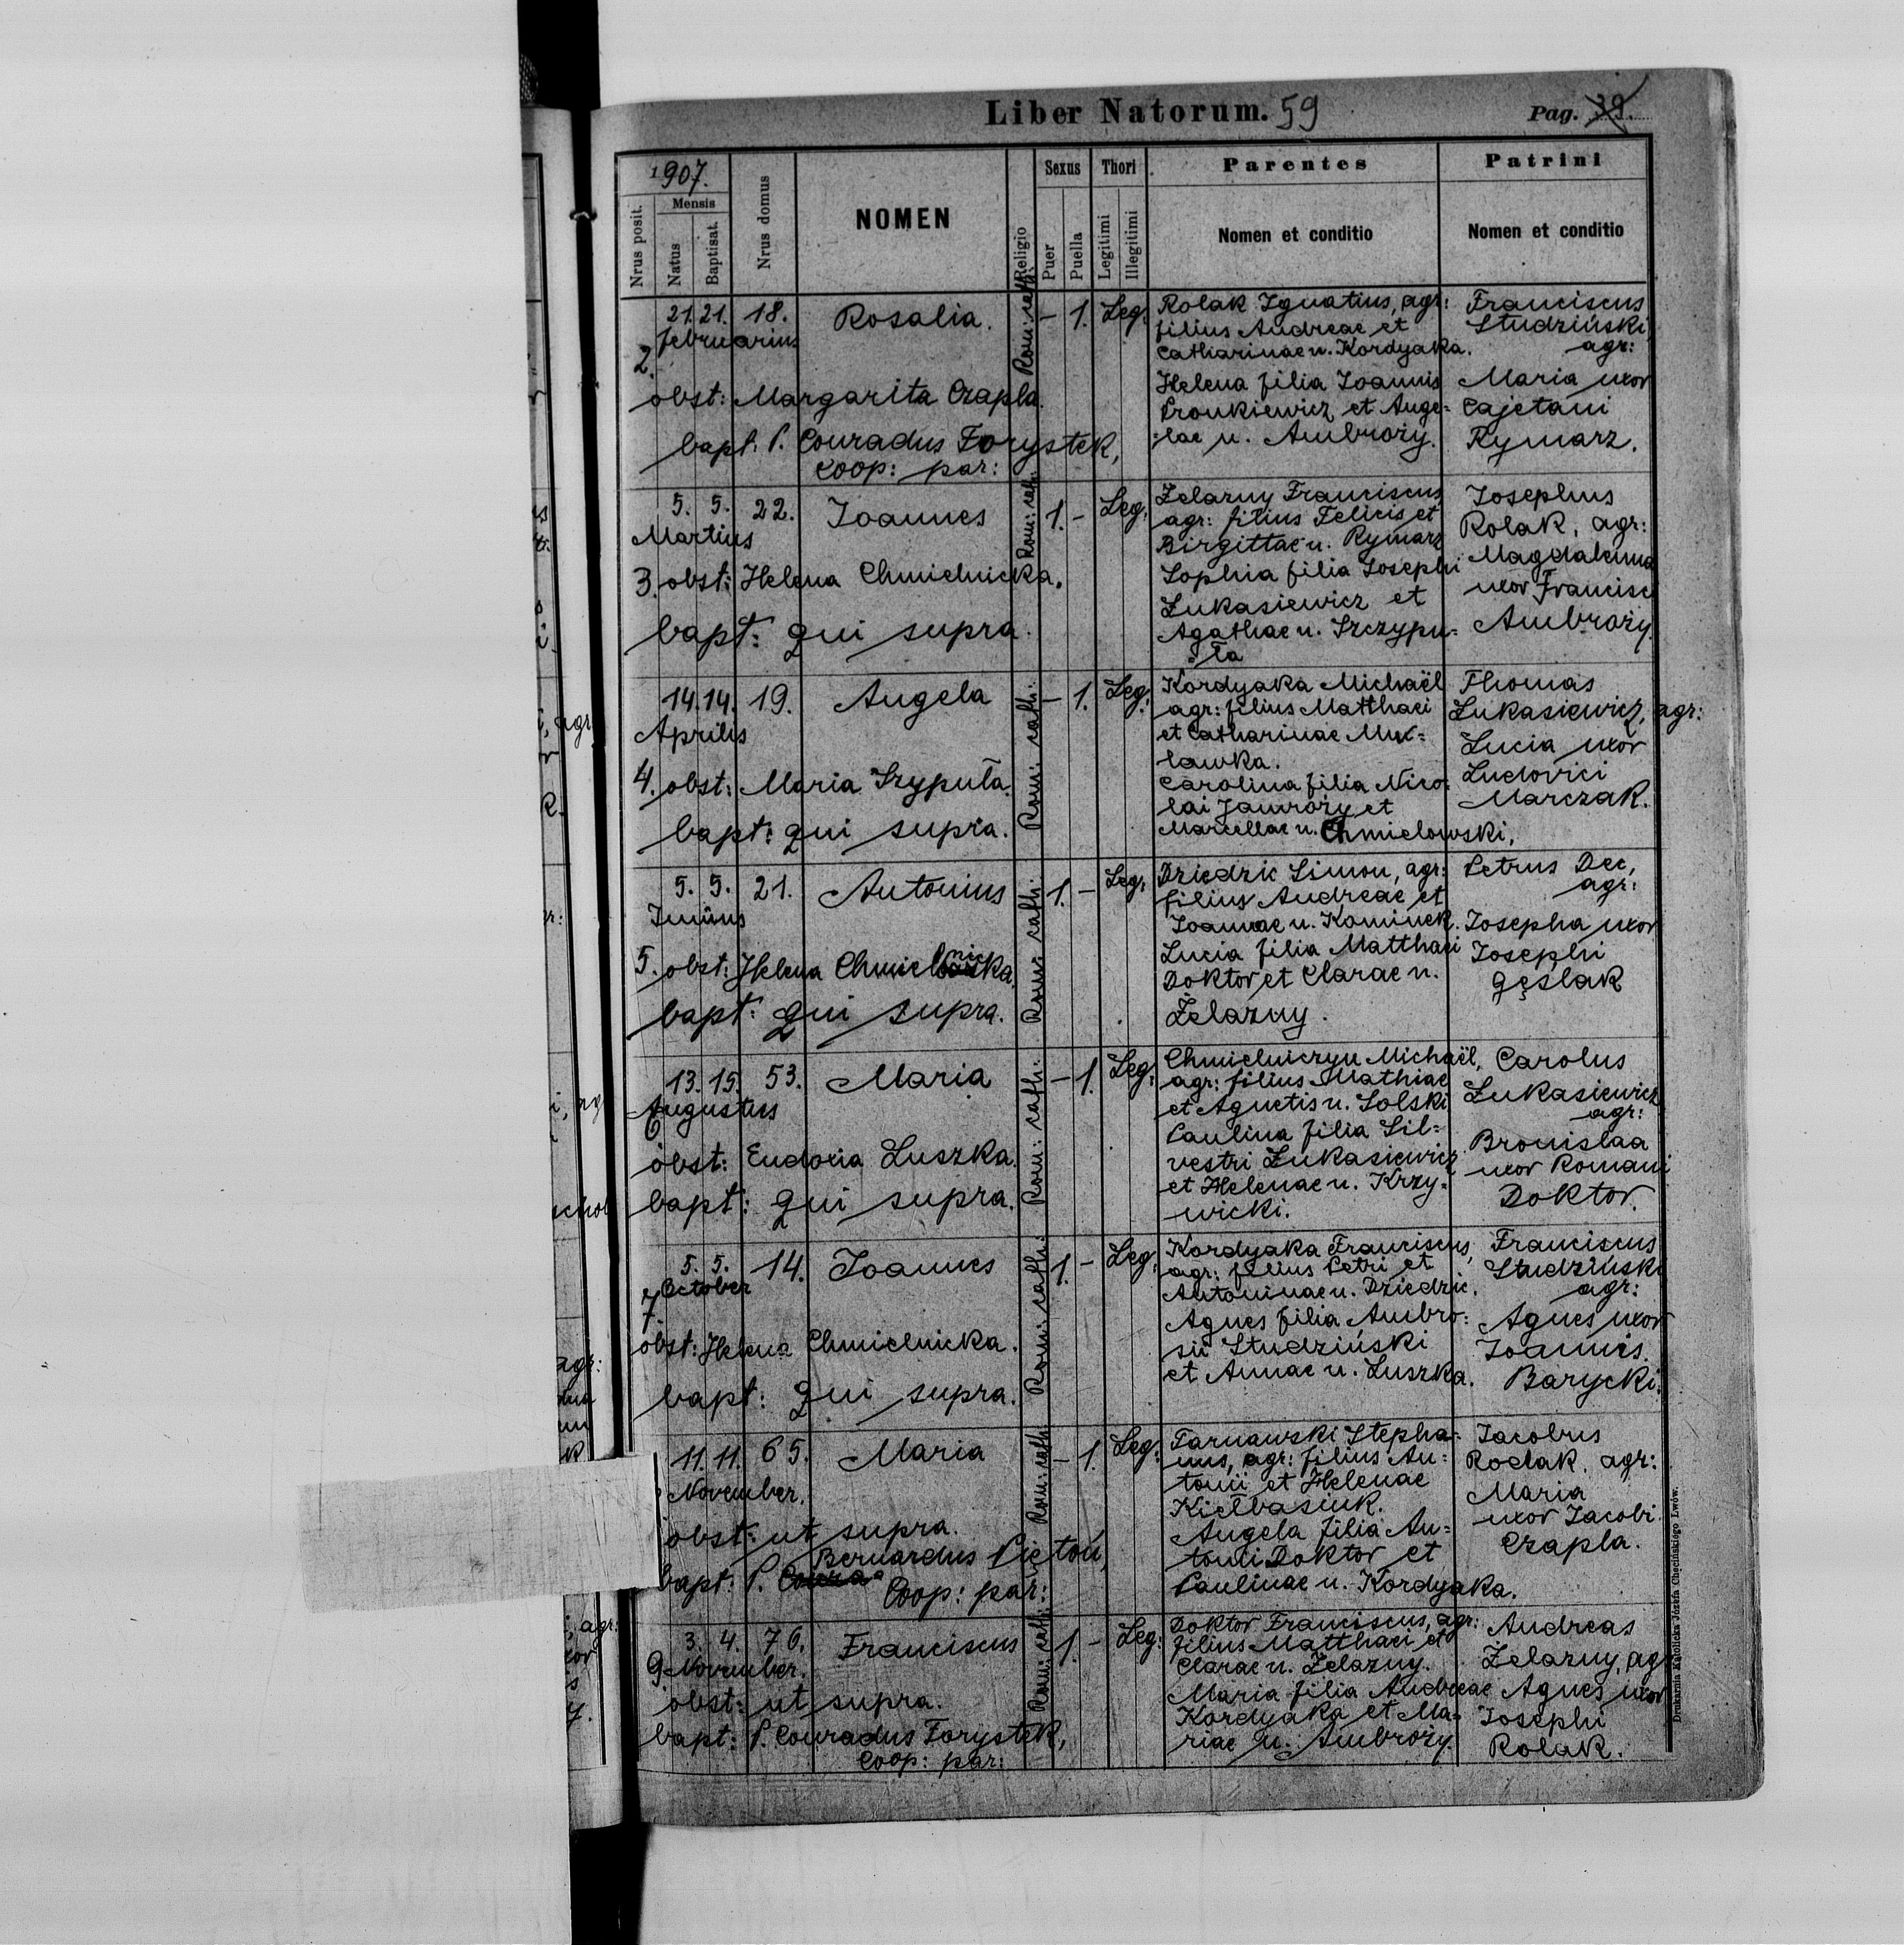 Liber Natorum. 59
Pag. 39.
1907.
Nrus posit.
Mensis
Natus
Baptisat.
Nrus domus
NOMEN
Religio
Sexus
Puer
Puella
Thori
Legitimi
Illegitimi
Parentes
Nomen et conditio
Patrini
Nomen et conditio
2.
21. 21. 18.
februarius
Rosalia.
Rom: cath:
- 1. Leg:
obst: Margarita Czapla.
bapt. P. Conradus Forystek,
coop: par:
Rolak Ignatius, agr:
filius Andreae et
Catharinae n. Kordyaka.
Helena filia Joannis
Pronkiewicz et Ange=
=lae n. Ambroży.
Franciscus
Studziński
agr:
Maria uxor
Cajetani
Rymarz.
5. 5. 22.
Martius
Joannes
Rom: cath:
1. - Leg.
3. obst: Helena Chmielnicka.
bapt: qui supra.
Żelazny Franciscus
agr: filius Felicis et
Birgittae n. Rymarz
Sophia filia Josephi
Łukasiewicz et
Agathae n. Szczypu=
=ła
Josephus
Rolak, agr:
Magdalenna
uxor Francisc
Ambroży.
14. 14. 19.
Aprilis
Angela
Rom: cath:
- 1. Leg:
4. obst: Maria Szyputa.
bapt: qui supra.
Kordyaka Michaël
agr: filius Matthaei
et Catharinae
lawka.
Carolina filia Nico=
lai Jamroży et
Marcellae n. Chmielowski.
Thomas
Łukasiewicz, agr:
Lucia uxor
Ludovici
Marczak.
5. 5. 21.
Junius
Antonius
Rom: cath:
1. - Leg:
5. obst: Helena Chmielnicka.
bapt: qui supra.
Dziedzic Simon, agr:
filius Andreae et
Joannae n. Kominek.
Lucia filia Matthaei
Doktor et Clarae n.
Żelazny.
Petrus Dec,
agr:
Josepha uxor
Josephi
Gęślak
13. 15. 53.
Augustus
6
Maria
Rom: cath:
- 1. Leg:
obst: Eudoxia Luszka.
bapt: qui supra.
Chmielniczyn Michaël,
agr: filius Mathiae
et Agnetis n. Solski
Paulina filia Sil=
vestri Łukasiewicz
et Helenae n. Krzy=
wicki.
Carolus
Łukasiewicz
agr:
Bronislaa
uxor Romani
Doktor.
5. 5. 14.
October
7.
Joannes
Rom: cath:
1. - Leg:
obst: Helena Chmielnicka.
bapt: qui supra.
Kordyaka Franciscus,
agr: filius Petri et
Antoninae n. Dziedzic.
Agnes filia Ambro=
sii Studziński
et Annae n. Luszka.
Franciscus
Studziński
agr:
Agnes uxor
Joannis
Barycki.
11. 11. 65.
November.
Maria
Rom: cath:
- 1. Leg:
obst: ut supra.
Bernardus Pietoń,
bapt: P.
Coop: par:
Tarnawski Stepha=
nus, agr: filius An=
tonii et Helenae
Kiełbasiuk.
Angela filia An=
tonii Doktor et
Paulinae n. Kordyaka.
Jacobus
Rodak, agr:
Maria
uxor Jacobi
Czapla.
3. 4. 76.
9. November.
Franciscus
Rom: cath:
1. - Leg:
obst: ut supra.
bapt: P. Conradus Forystek,
coop: par:
Doktor Franciscus, agr:
filius Matthaei et
Clarae n. Żelazny.
Maria filia Andreae
Kordyaka et Ma=
riae n. Ambroży.
Andreas
Żelazny, ag
Agnes uxor
Josephi
Rolak.
Drukarnia Katolicka Józefa Chęcińskiego Lwów.